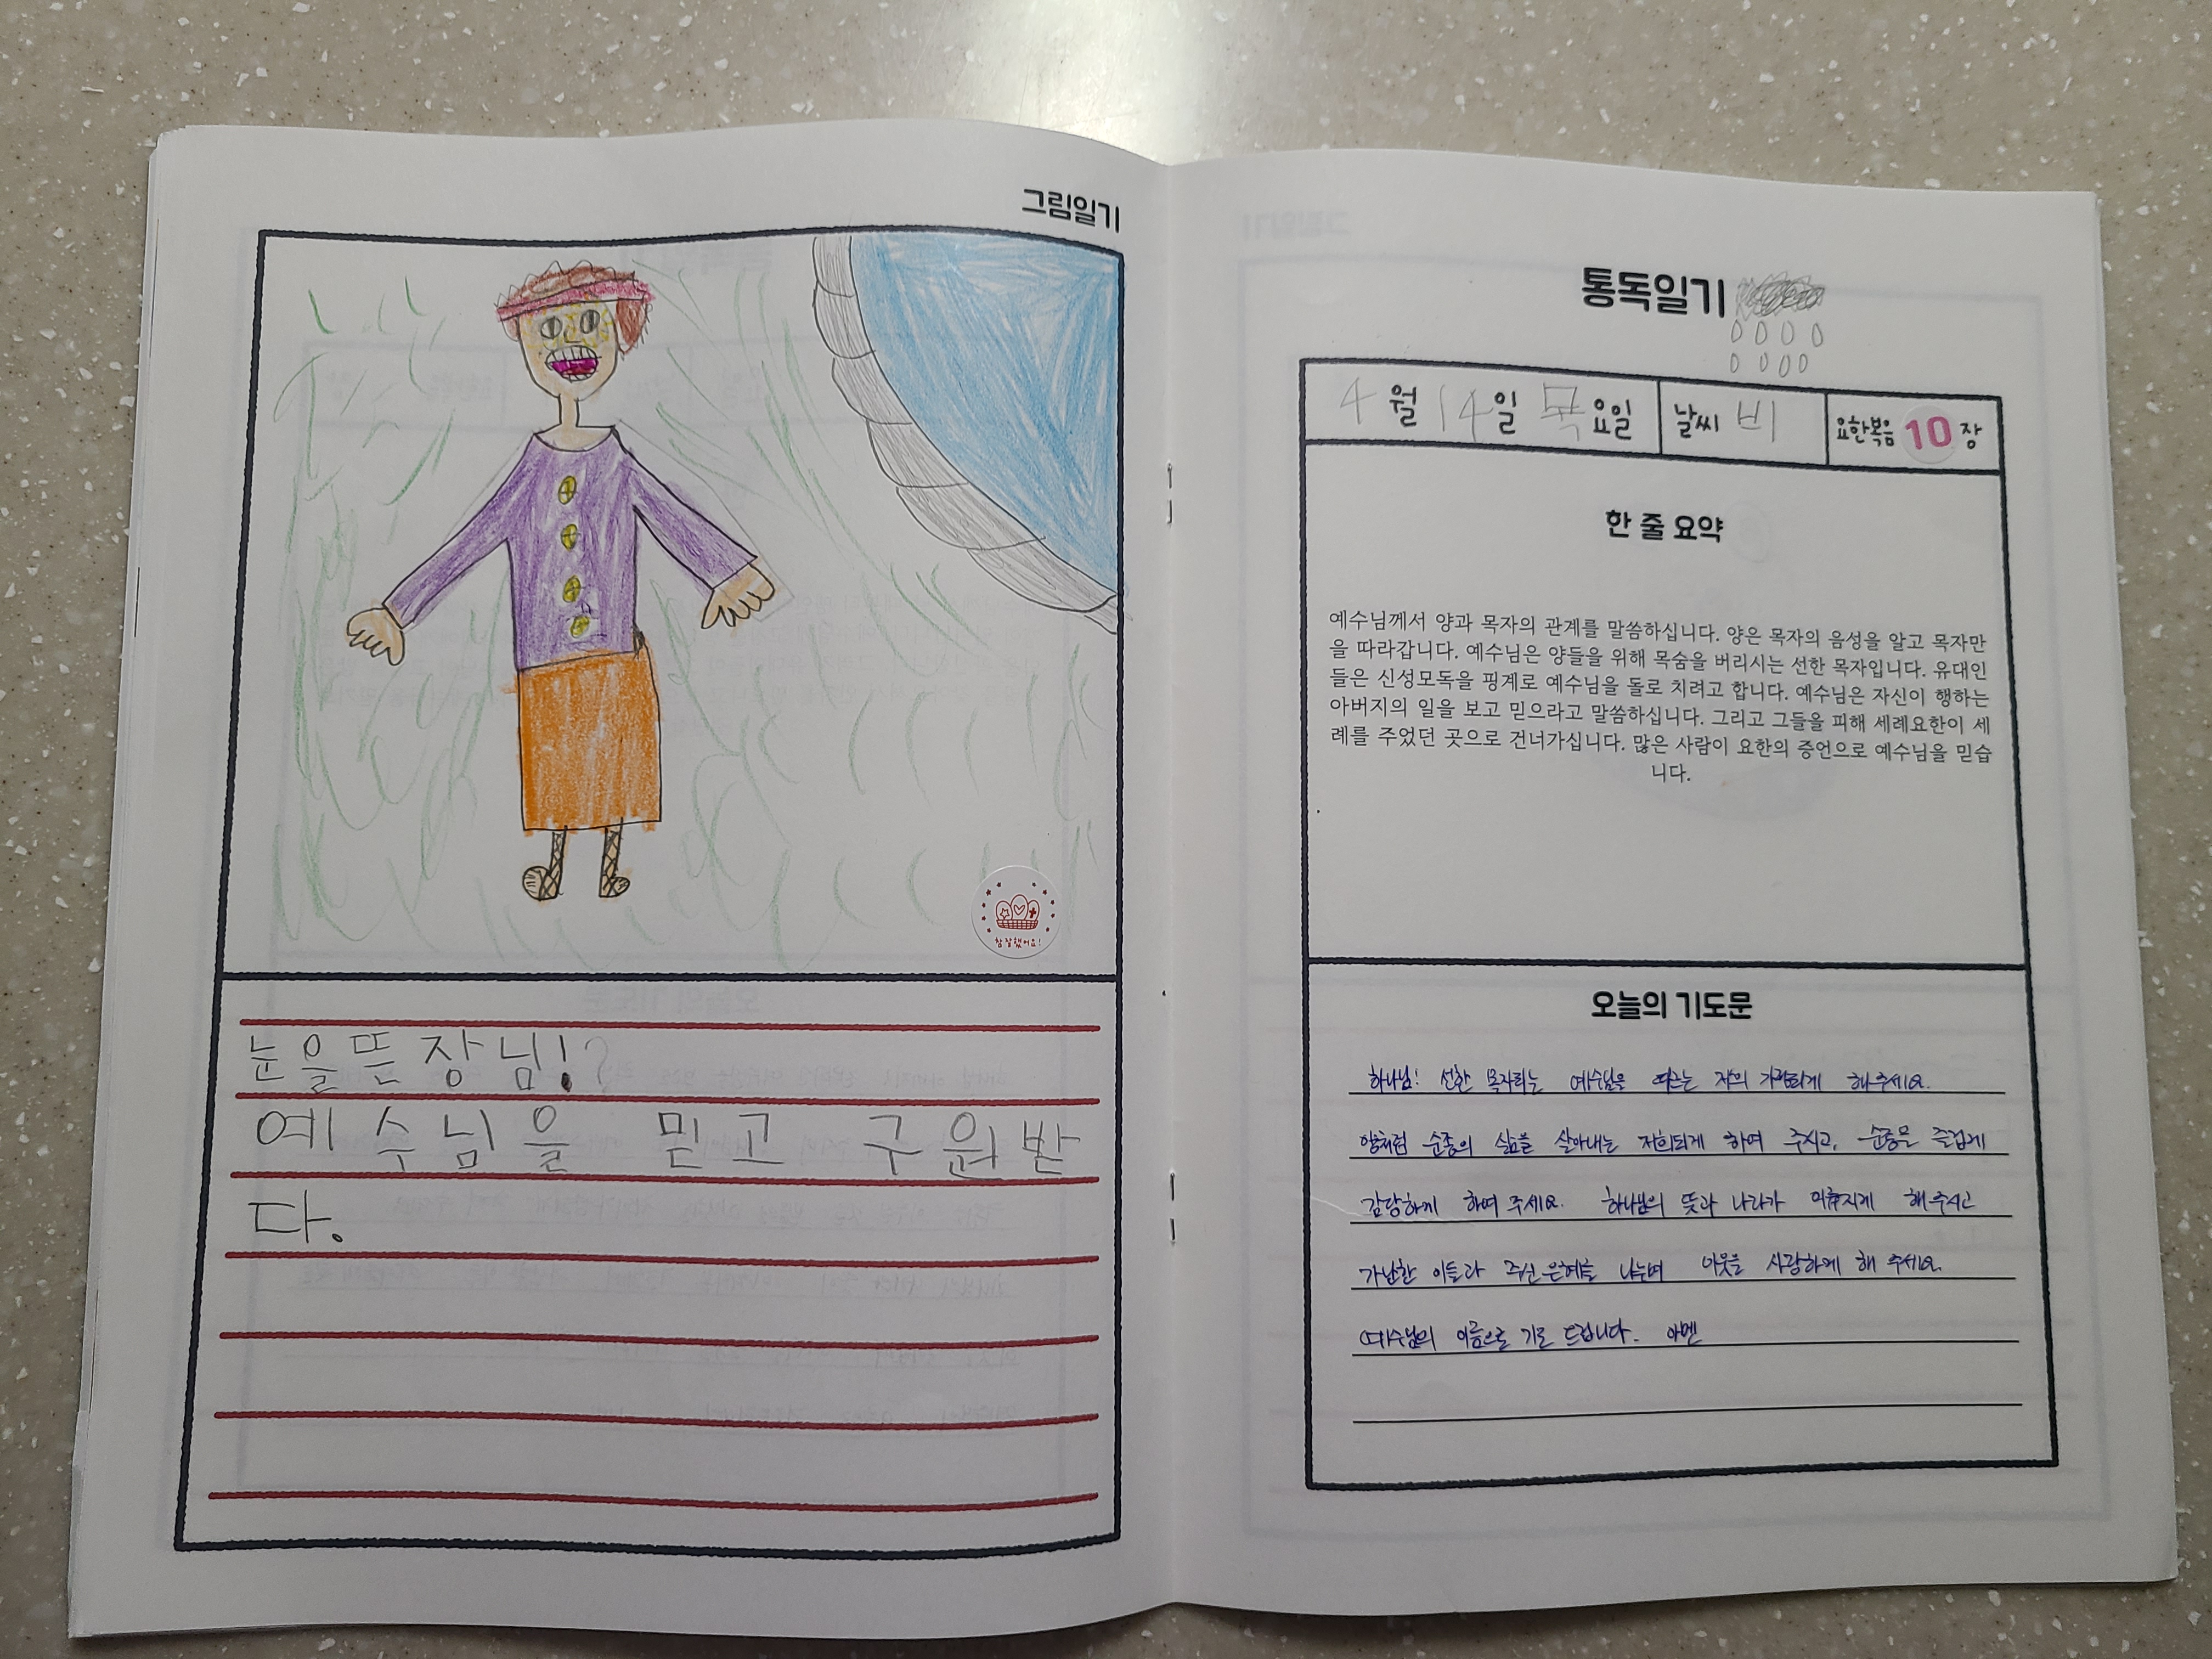 그림일기
참 잘했어요!
눈을뜬장님!?
예수님을 믿고 구원받
다.
통독일기
4월 14일 목요일 날씨 비 요한복음 10 장
한 줄 요약
예수님께서 양과 목자의 관계를 말씀하십니다. 양은 목자의 음성을 알고 목자만
을 따라갑니다. 예수님은 양들을 위해 목숨을 버리시는 선한 목자입니다. 유대인
들은 신성모독을 핑계로 예수님을 돌로 치려고 합니다. 예수님은 자신이 행하는
아버지의 일을 보고 믿으라고 말씀하십니다. 그리고 그들을 피해 세례요한이 세
례를 주었던 곳으로 건너가십니다. 많은 사람이 요한의 증언으로 예수님을 믿습
니다.
오늘의 기도문
하나님! 선한 목자되는 예수님을 해주세요.
양처럼 순종의 삶을 살아내는 저희되게 하여 주시고, 순종을 즐겁게
감당하게 하여 주세요. 하나님의 뜻과 나라가 이루어지게 해주시고
가난한 이들과 주신 은혜를 나누며 이웃을 사랑하게 해 주세요.
예수님의 이름으로 기도 드립니다. 아멘